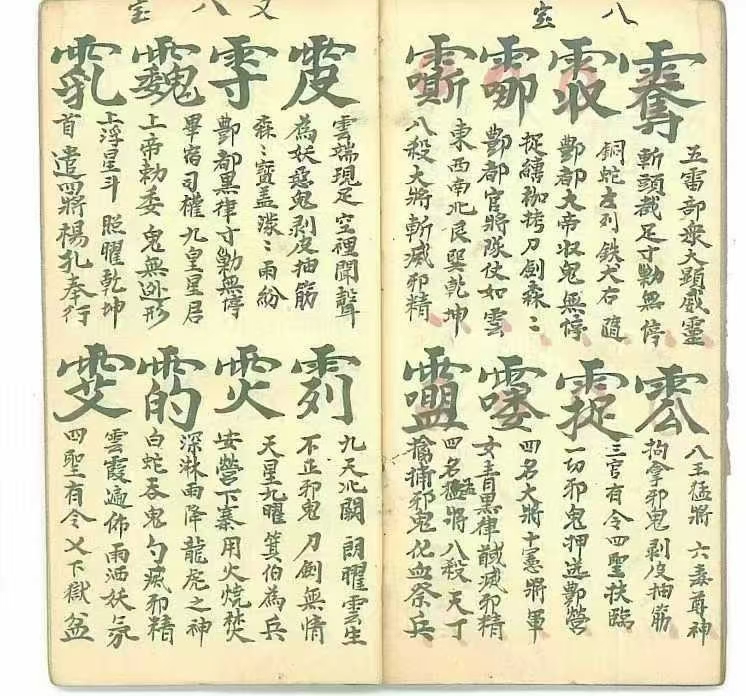 八宝
五雷部衆大顯威靈
斬頭截足寸㔢無停
銅蛇左列鉄犬右隨
酆都大帝収鬼無停
捉縛枷拷刀劍森〻
酆都官將隊仗如雲
東西南北艮巽乾坤
八殺大將斬滅邪精
八王猛將六毒尊神
拘拿邪鬼剥皮抽筋
三官有令四聖扶臨
一切邪鬼押送酆營
四名大將十憲將軍
女青黑律馘滅邪精
四名猛將八殺天丁
擒捕邪鬼化血祭兵
又八宝
雲端現足空裡聞聲
為妖惡鬼剥皮抽筋
森〻寶盖濛〻雨紛
酆都黑律寸㔢無停
畢宿司權九皇星君
上帝勅委鬼無迯形
上浮星斗照曜乾坤
首遣四將楊孔奉行
九天北闕朗曜雲生
不正邪鬼刀劍無情
天星九曜箕伯為兵
安營下寨用火燒焚
深淋雨降龍虎之神
白蛇吞鬼勺滅邪精
雲霞遍佈雨洒妖氛
四聖有令乂下獄盆